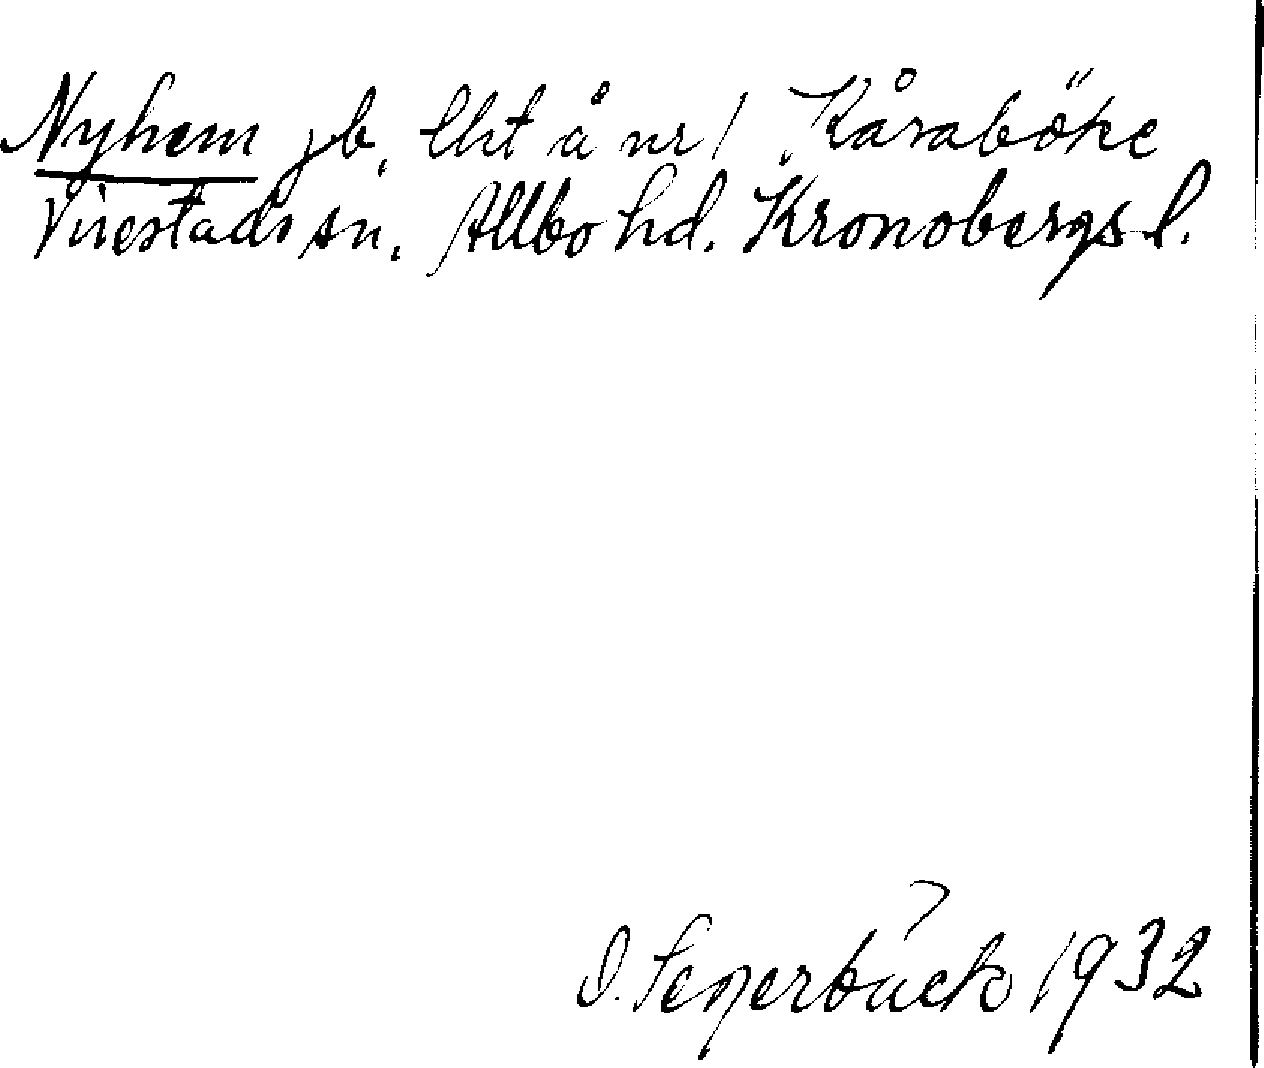 Nyhem jb, lht å nr 1 Kåraböke
Virestads sn. Allbo hd. Kronobergs l.
D. Segerbäck 1932